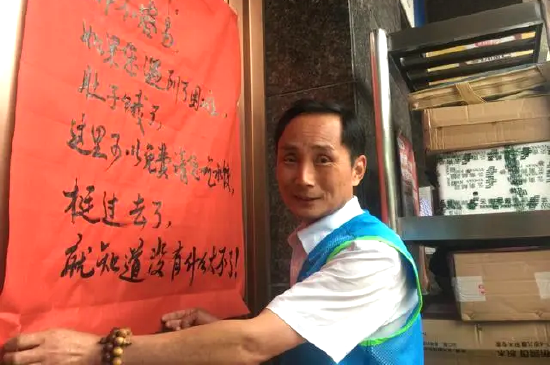 如果您遇到了困难,
肚子饿了,
这里可以免费请您吃水饺,
挺过去了,
就知道没有什么大不了!